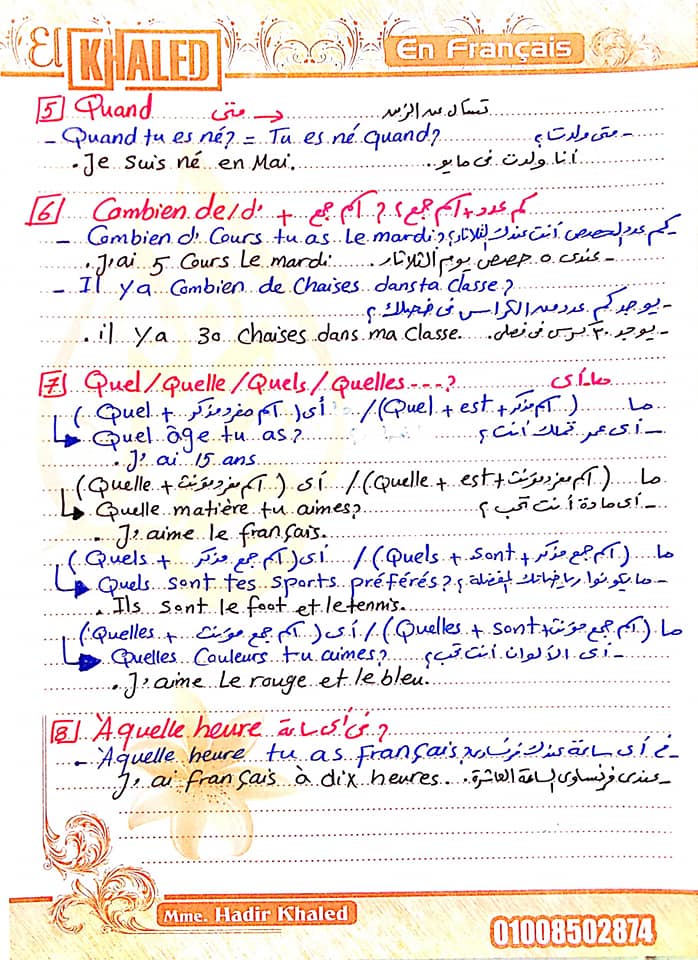 El KHALED
En Français
5 Quand متى تسأل عن الزمن
- Quand tu es né? = Tu es né quand? - متى ولدت؟
. Je suis né en Mai. أنا ولدت فى مايو.
6 Combien de/d' + اسم جمع ? كم عدد + اسم جمع؟
- Combien d' Cours tu as le mardi? كم عدد الحصص أنت عندك الثلاثاء؟
. J'ai 5 Cours le mardi. - عندى ٥ حصص يوم الثلاثاء.
- Il ya Combien de Chaises dans ta Classe?
- يوجد كم عدد من الكراسى فى فصلك؟
. il ya 30 chaises dans ma classe. - يوجد ٣٠ كرسى فى فصلى.
7 Quel/Quelle/Quels/Quelles ---? ما - أى
(Quel + اسم مفرد مذكر) أى / (Quel + est + اسم مذكر) ما
Quel âge tu as? - أى عمر تملك أنت؟
. J'ai 15 ans
(Quelle + اسم مفرد مؤنث) أى / (Quelle + est + اسم مفرد مؤنث) ما
Quelle matière tu aimes? - أى مادة أنت تحب؟
. J'aime le français.
(Quels + اسم جمع مذكر) أى / (Quels + sont + اسم جمع مذكر) ما
Quels sont tes sports préférés? - ما يكونوا رياضاتك المفضلة؟
. Ils sont le foot et le tennis.
(Quelles + اسم جمع مؤنث) أى / (Quelles + sont + اسم جمع مؤنث) ما
Quelles Couleurs tu aimes? - أى الألوان أنت تحب؟
. J'aime le rouge et le bleu.
8 À quelle heure فى أى ساعة ?
- À quelle heure tu as français? فى أى ساعة عندك
J'ai français à dix heures. - عندى فرنساوى الساعة العاشرة.
Mme. Hadir Khaled
01008502874